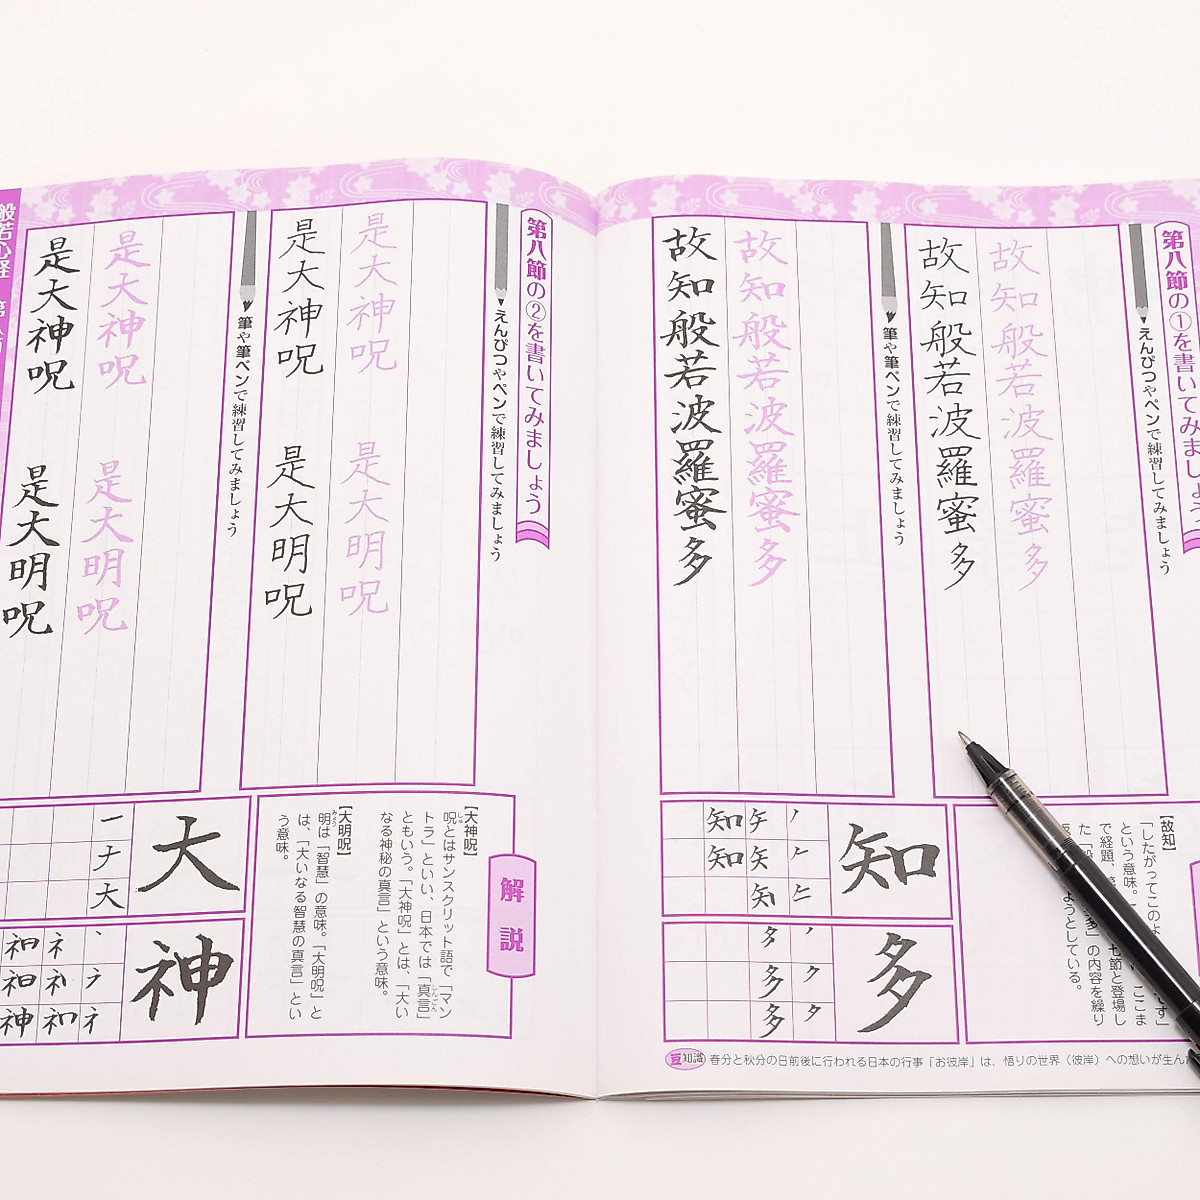 第八節の①を書いてみましょう
えんぴつやペンで練習してみましょう
故知般若波羅蜜多
故知般若波羅蜜多
筆や筆ペンで練習してみましょう
故知般若波羅蜜多
故知般若波羅蜜多
【故知】
「したがってこのよ
という意味。
ここま
で経題、
七節と登場し
た「般
多」の内容を繰り
ようとしている。
知
多
豆知識 春分と秋分の日前後に行われる日本の行事「お彼岸」は、悟りの世界（彼岸）への想いが生んだ
第八節の②を書いてみましょう
えんぴつやペンで練習してみましょう
是大神呪 是大明呪
是大神呪 是大明呪
筆や筆ペンで練習してみましょう
是大神呪 是大明呪
是大神呪 是大明呪
解説
【大神呪】
呪とはサンスクリット語で「マン
トラ」といい、日本では「真言」
ともいう。「大神呪」とは、「大い
なる神秘の真言」という意味。
【大明呪】
明は「智慧」の意味。「大明呪」と
は、「大いなる智慧の真言」とい
う意味。
大
神
般若心経